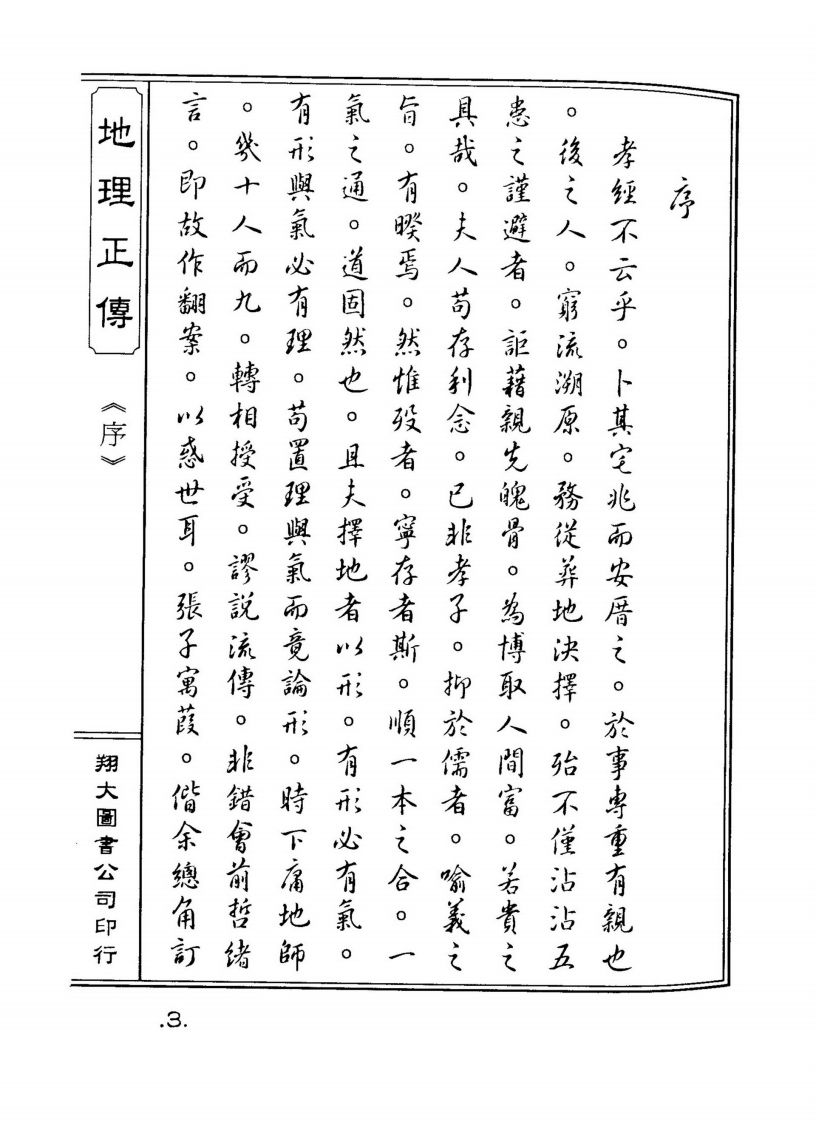 序
孝經不云乎。卜其宅兆而安厝之。於事專重有親也
。後之人。窮流溯原。務從葬地決擇。殆不僅沾沾五
患之謹避者。詎藉親先魄骨。為博取人間富。若貴之
具哉。夫人苟存利念。已非孝子。抑於儒者。喻義之
旨。有暌焉。然惟歿者。寧存者斯。順一本之合。一
氣之通。道固然也。且夫擇地者以形。有形必有氣。
有形與氣必有理。苟置理與氣而竟論形。時下庸地師
。幾十人而九。轉相授受。謬說流傳。非錯會前哲緒
言。即故作翻案。以惑世耳。張子寓葭。偕余總角訂
地理正傳
《序》
翔大圖書公司印行
.3.